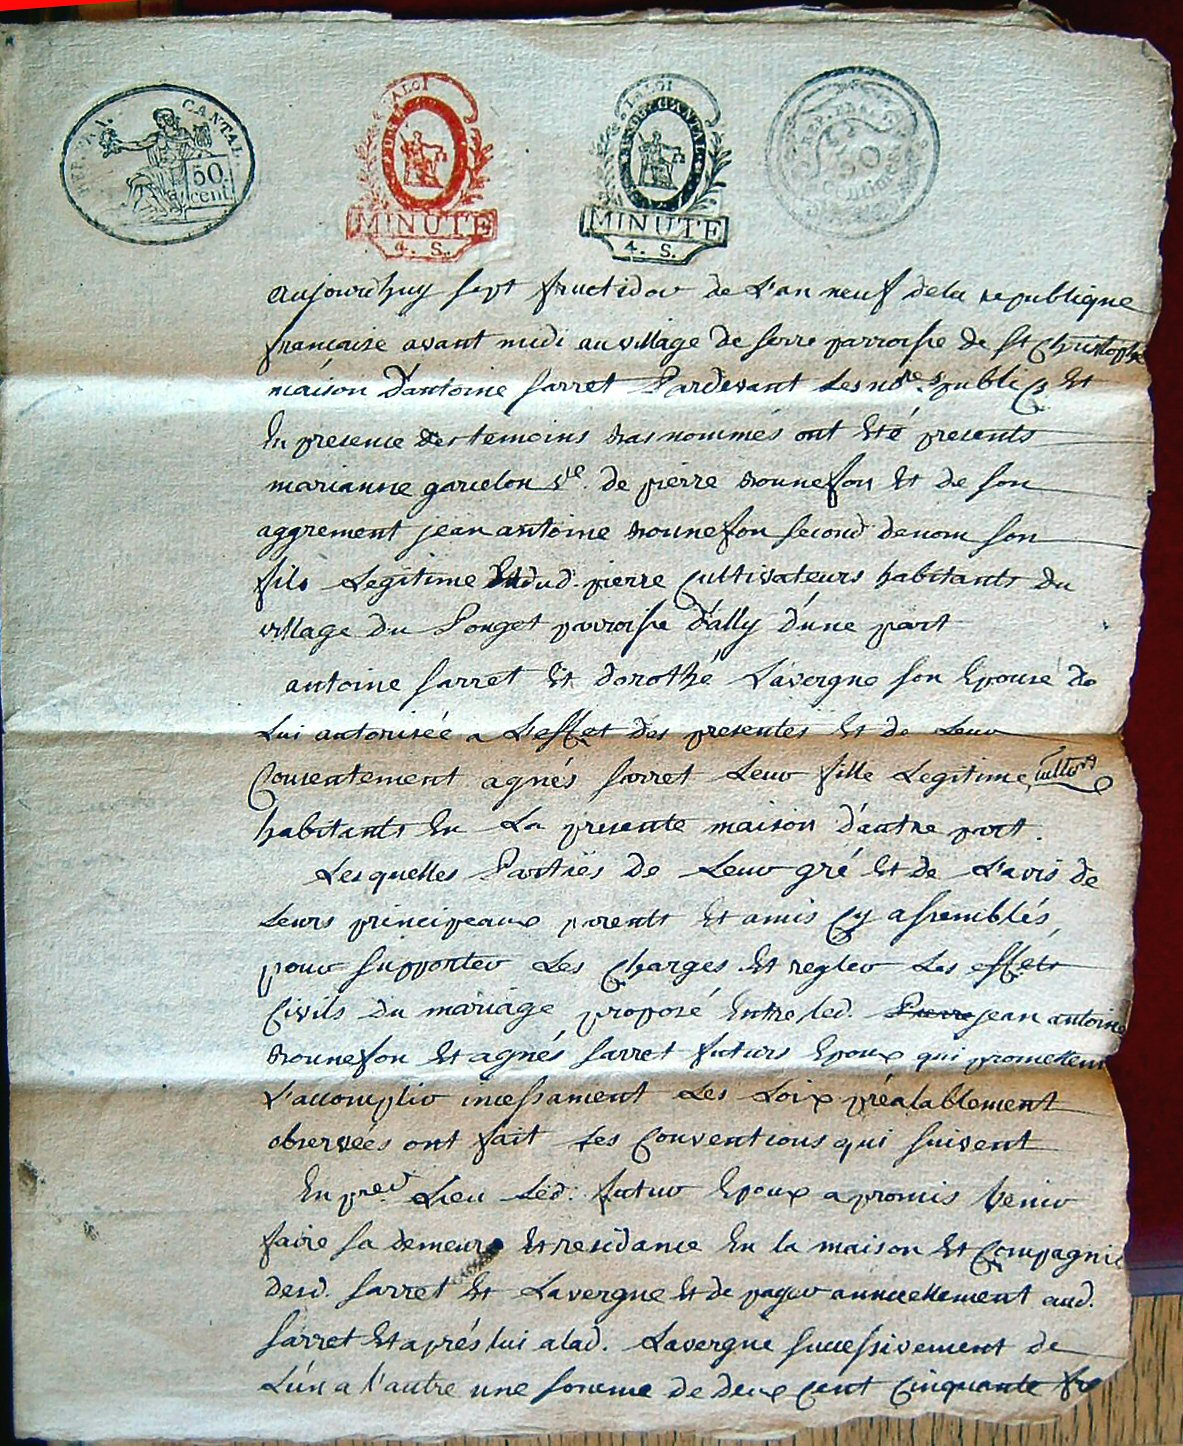 CANTAL
50.
cent.
LA LOI
MINUTE
4. S.
LA LOI
CANTAL
MINUTE
4. S.
REP. FRA
50
Centimes
aujourdhuy sept fructidor de L'an neuf dela republique
francaise avant midi au village de serre parroisse de st Christophe
maison d'antoine sarret Pardevant Les nores publics Et
En presence des temoins bas nommés ont Eté presents
marianne garcelon ve. de pierre bonnefon Et de son
aggrement jean antoine bonnefon second denom son
fils Legitime Et dud. pierre cultivateurs habitants du
village du Pouget parroisse d'ally d'une part
antoine sarret Et dorothé Lavergne son Epouse de
Lui autorisée a L'effet des presentes Et de Leur
Consentement agnés sarret Leur fille Legitime, cultrs
habitants En La presente maison d'autre part.
Lesquelles Partiës de Leur gré Et de L'avis de
Leurs principeaux parents Et amis cy assemblés,
pour supporter Les Charges Et regler Les effets
Civils du mariage proposé Entre led. Pierre jean antoine
bonnefon Et agnés sarret futurs Epoux qui promettent
L'accomplir incessament Les Loix préalablement
observeés ont fait Les Conventions qui suivent
En prer. Lieu Led. futur Epoux a promis venir
faire sa demeure Et residance En la maison Et Compagnie
desd. sarret Et Lavergne Et de payer annuellement aud.
sarret Et aprés lui a lad. Lavergne successivement de
L'un a l'autre une somme de deux cent cinquante fr